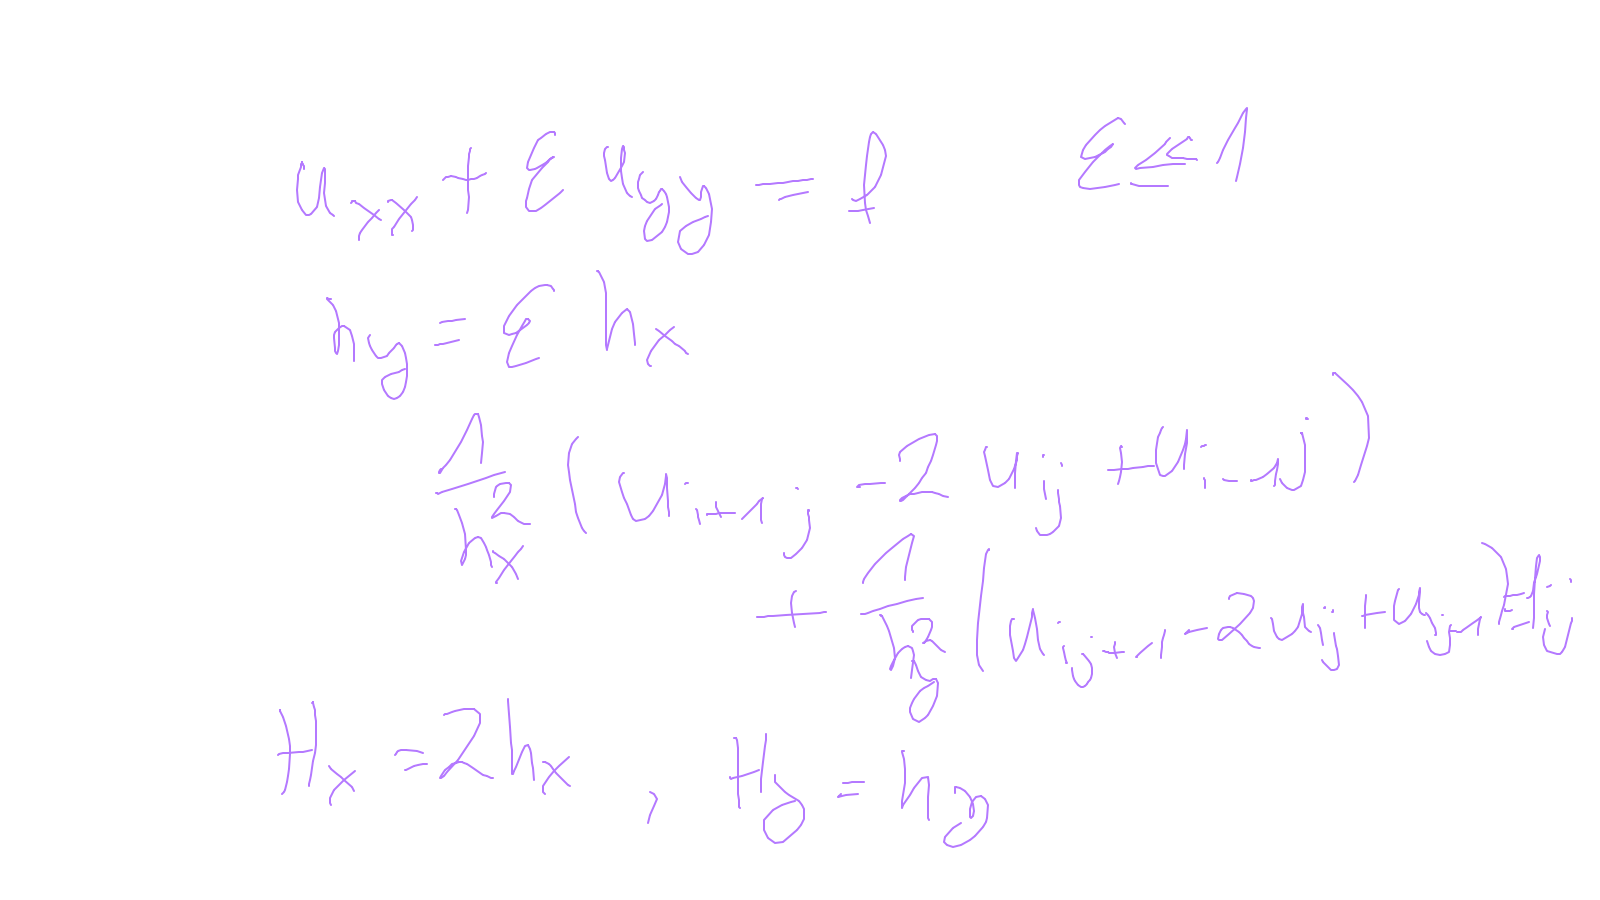 u_xx + ε u_yy = f    ε ≤≤ 1
h_y = ε h_x
1/h_x^2 (u_{i+1 j} - 2 u_{ij} + u_{i-1 j})
+ 1/h_y^2 (u_{ij+1} - 2 u_{ij} + u_{ij-1}) = f_{ij}
H_x = 2 h_x , H_y = h_y